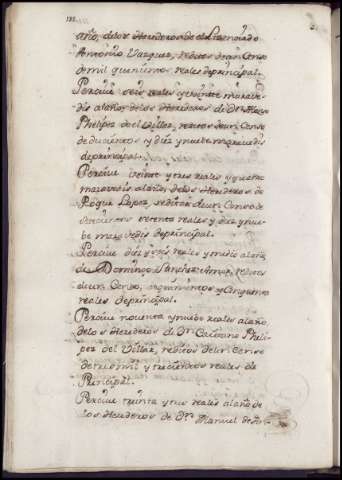 año, delos Herederos de el Licenciado
Antonio Vazquez, reditos de un Censo
de mil quinientos reales de principal.
Percive seis reales y maravedis
dis alaño, de los Herederos de Dn.
Phelipez del Villar, reditos de un Censo
de ducientos y diez y nueve maravedis
de principal.
Percive veinte y tres reales y quatro
maravedis alaño, de los Herederos de
Roque Lopez, reditos de un Censo de
setecientos setenta reales y diez y nue-
be maravedis de principal.
Percive diez y seis reales y medio alaño,
de Domingo Sanchez Amor, reditos
de un Censo, de quinientos y cinquenta
reales de principal.
Percive noventa y nueve reales alaño,
delos Herederos de Dn. Cayetano Pheli-
pez del Villar, reditos de un Censo
de tres mil y trecientos reales de
Principal.
Percive treinta y tres reales alaño de
los Herederos de Dn. Manuel de